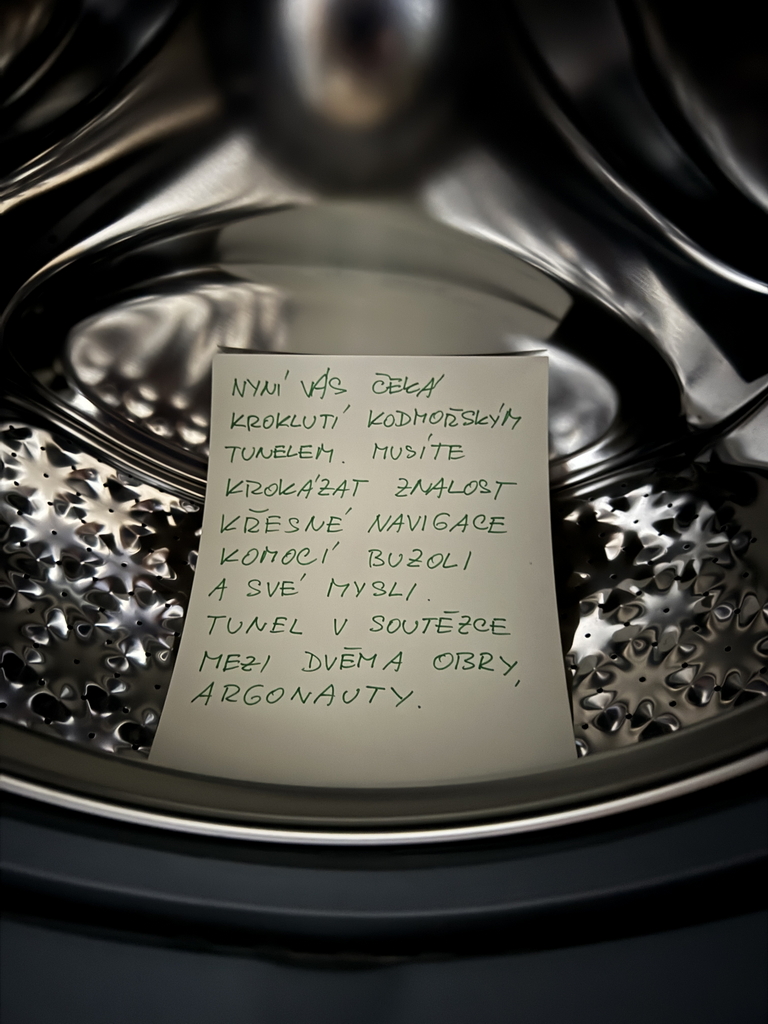 NYNÍ VÁS ČEKÁ
KROKLUTÍ KODMOŘSKÝM
TUNELEM. MUSÍTE
KROKÁZAT ZNALOST
KŘESNÉ NAVIGACE
KOMOCÍ BUZOLI
A SVÉ MYSLI.
TUNEL V SOUTĚZCE
MEZI DVĚMA OBRY,
ARGONAUTY.